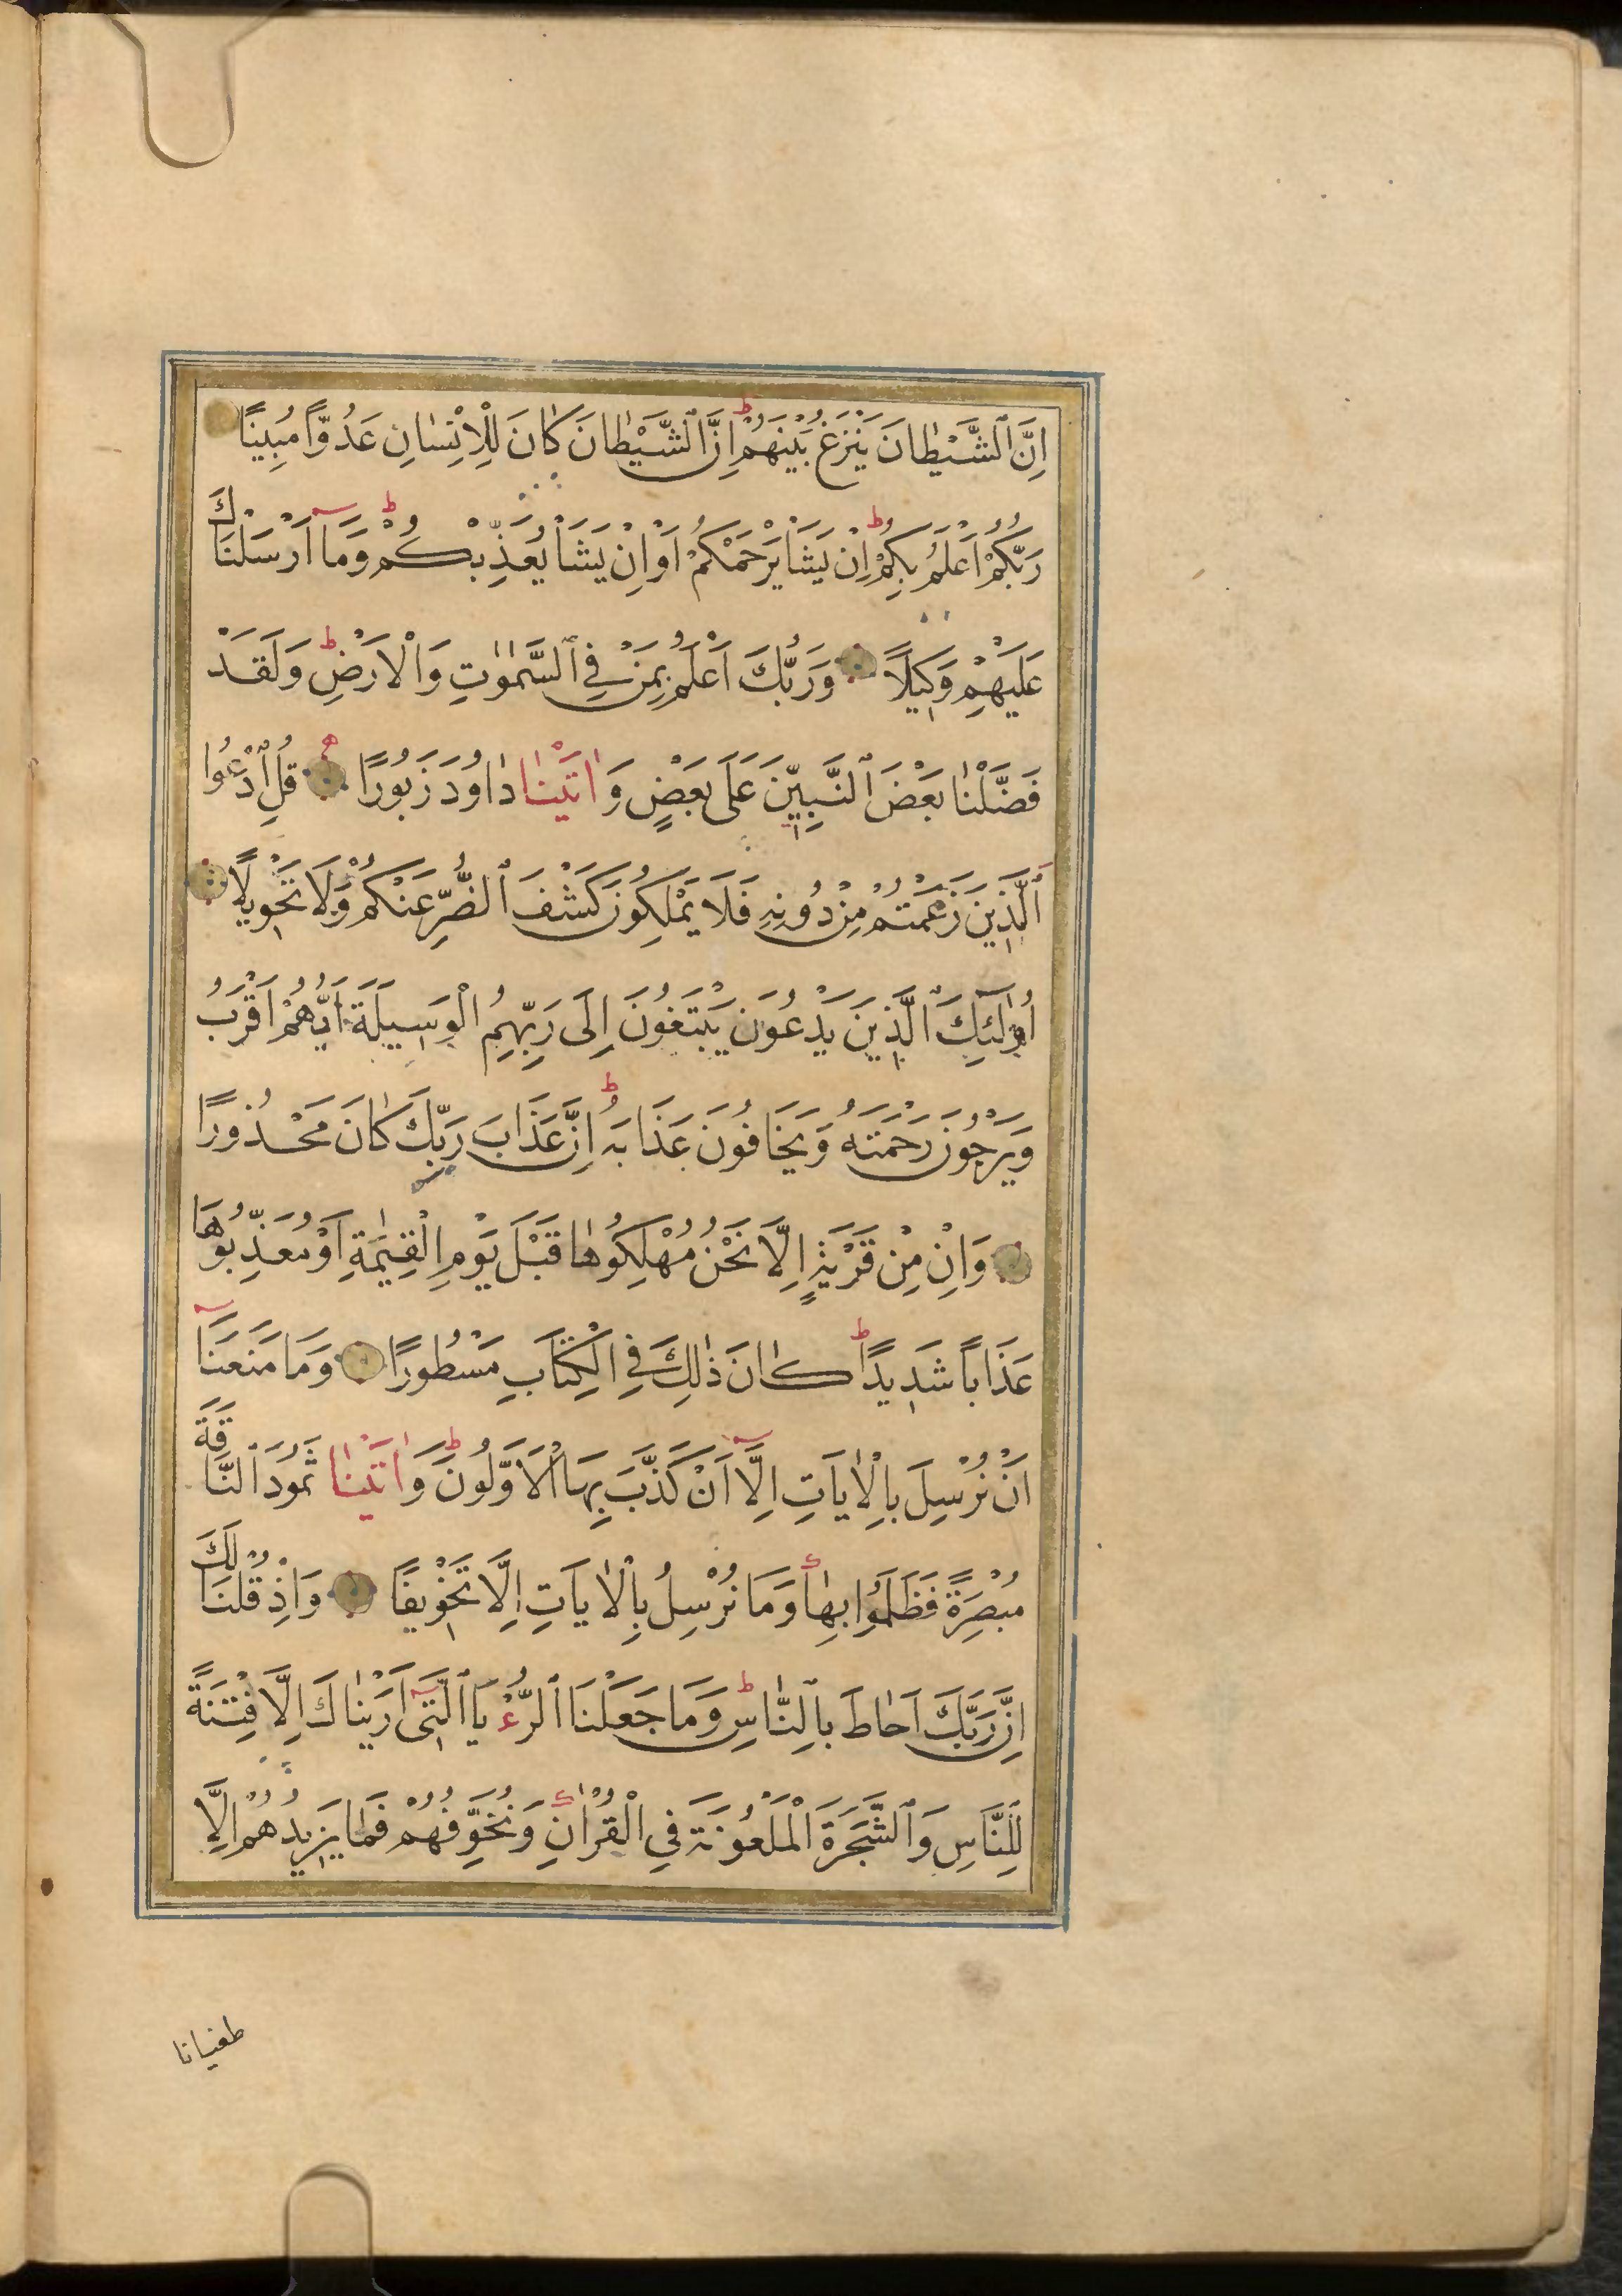 اِنَّ ٱلشَّيْطَانَ يَنْزَغُ بَيْنَهُمْ ط اِنَّ ٱلشَّيْطَانَ كَانَ لِلْاِنْسَانِ عَدُوًّا مُبِينًا
رَبُّكُمْ اَعْلَمُ بِكُمْ ط اِنْ يَشَأْ يَرْحَمْكُمْ اَوْ اِنْ يَشَأْ يُعَذِّبْكُمْ ط وَمَآ اَرْسَلْنَاكَ
عَلَيْهِمْ وَكِيلًا وَرَبُّكَ اَعْلَمُ بِمَنْ فِي ٱلسَّمٰوٰتِ وَالْاَرْضِ ط وَلَقَدْ
فَضَّلْنَا بَعْضَ ٱلنَّبِيّٖنَ عَلَى بَعْضٍ وَاٰتَيْنَا دَاوُدَ زَبُورًا قُلِ ٱدْعُوا
ٱلَّذِينَ زَعَمْتُمْ مِنْ دُونِهِ فَلَا يَمْلِكُونَ كَشْفَ ٱلضُّرِّ عَنْكُمْ وَلَا تَحْوِيلًا
اُولٰٓئِكَ ٱلَّذِينَ يَدْعُونَ يَبْتَغُونَ اِلَى رَبِّهِمُ الْوَسِيلَةَ اَيُّهُمْ اَقْرَبُ
وَيَرْجُونَ رَحْمَتَهُ وَيَخَافُونَ عَذَابَهُ ط اِنَّ عَذَابَ رَبِّكَ كَانَ مَحْذُورًا
وَاِنْ مِنْ قَرْيَةٍ اِلَّا نَحْنُ مُهْلِكُوهَا قَبْلَ يَوْمِ الْقِيٰمَةِ اَوْ مُعَذِّبُوهَا
عَذَابًا شَدِيدًا ط كَانَ ذٰلِكَ فِي الْكِتَابِ مَسْطُورًا وَمَا مَنَعَنَآ
اَنْ نُرْسِلَ بِالْاٰيَاتِ اِلَّآ اَنْ كَذَّبَ بِهَا الْاَوَّلُونَ ط وَاٰتَيْنَا ثَمُودَ ٱلنَّاقَةَ
مُبْصِرَةً فَظَلَمُوا بِهَا وَمَا نُرْسِلُ بِالْاٰيَاتِ اِلَّا تَخْوِيفًا وَاِذْ قُلْنَا لَكَ
اِنَّ رَبَّكَ اَحَاطَ بِالنَّاسِ ط وَمَا جَعَلْنَا ٱلرُّءْيَا ٱلَّتِٓي اَرَيْنَاكَ اِلَّا فِتْنَةً
لِلنَّاسِ وَٱلشَّجَرَةَ الْمَلْعُونَةَ فِي الْقُرْاٰنِ وَنُخَوِّفُهُمْ فَمَا يَزِيدُهُمْ اِلَّا
طغيانا